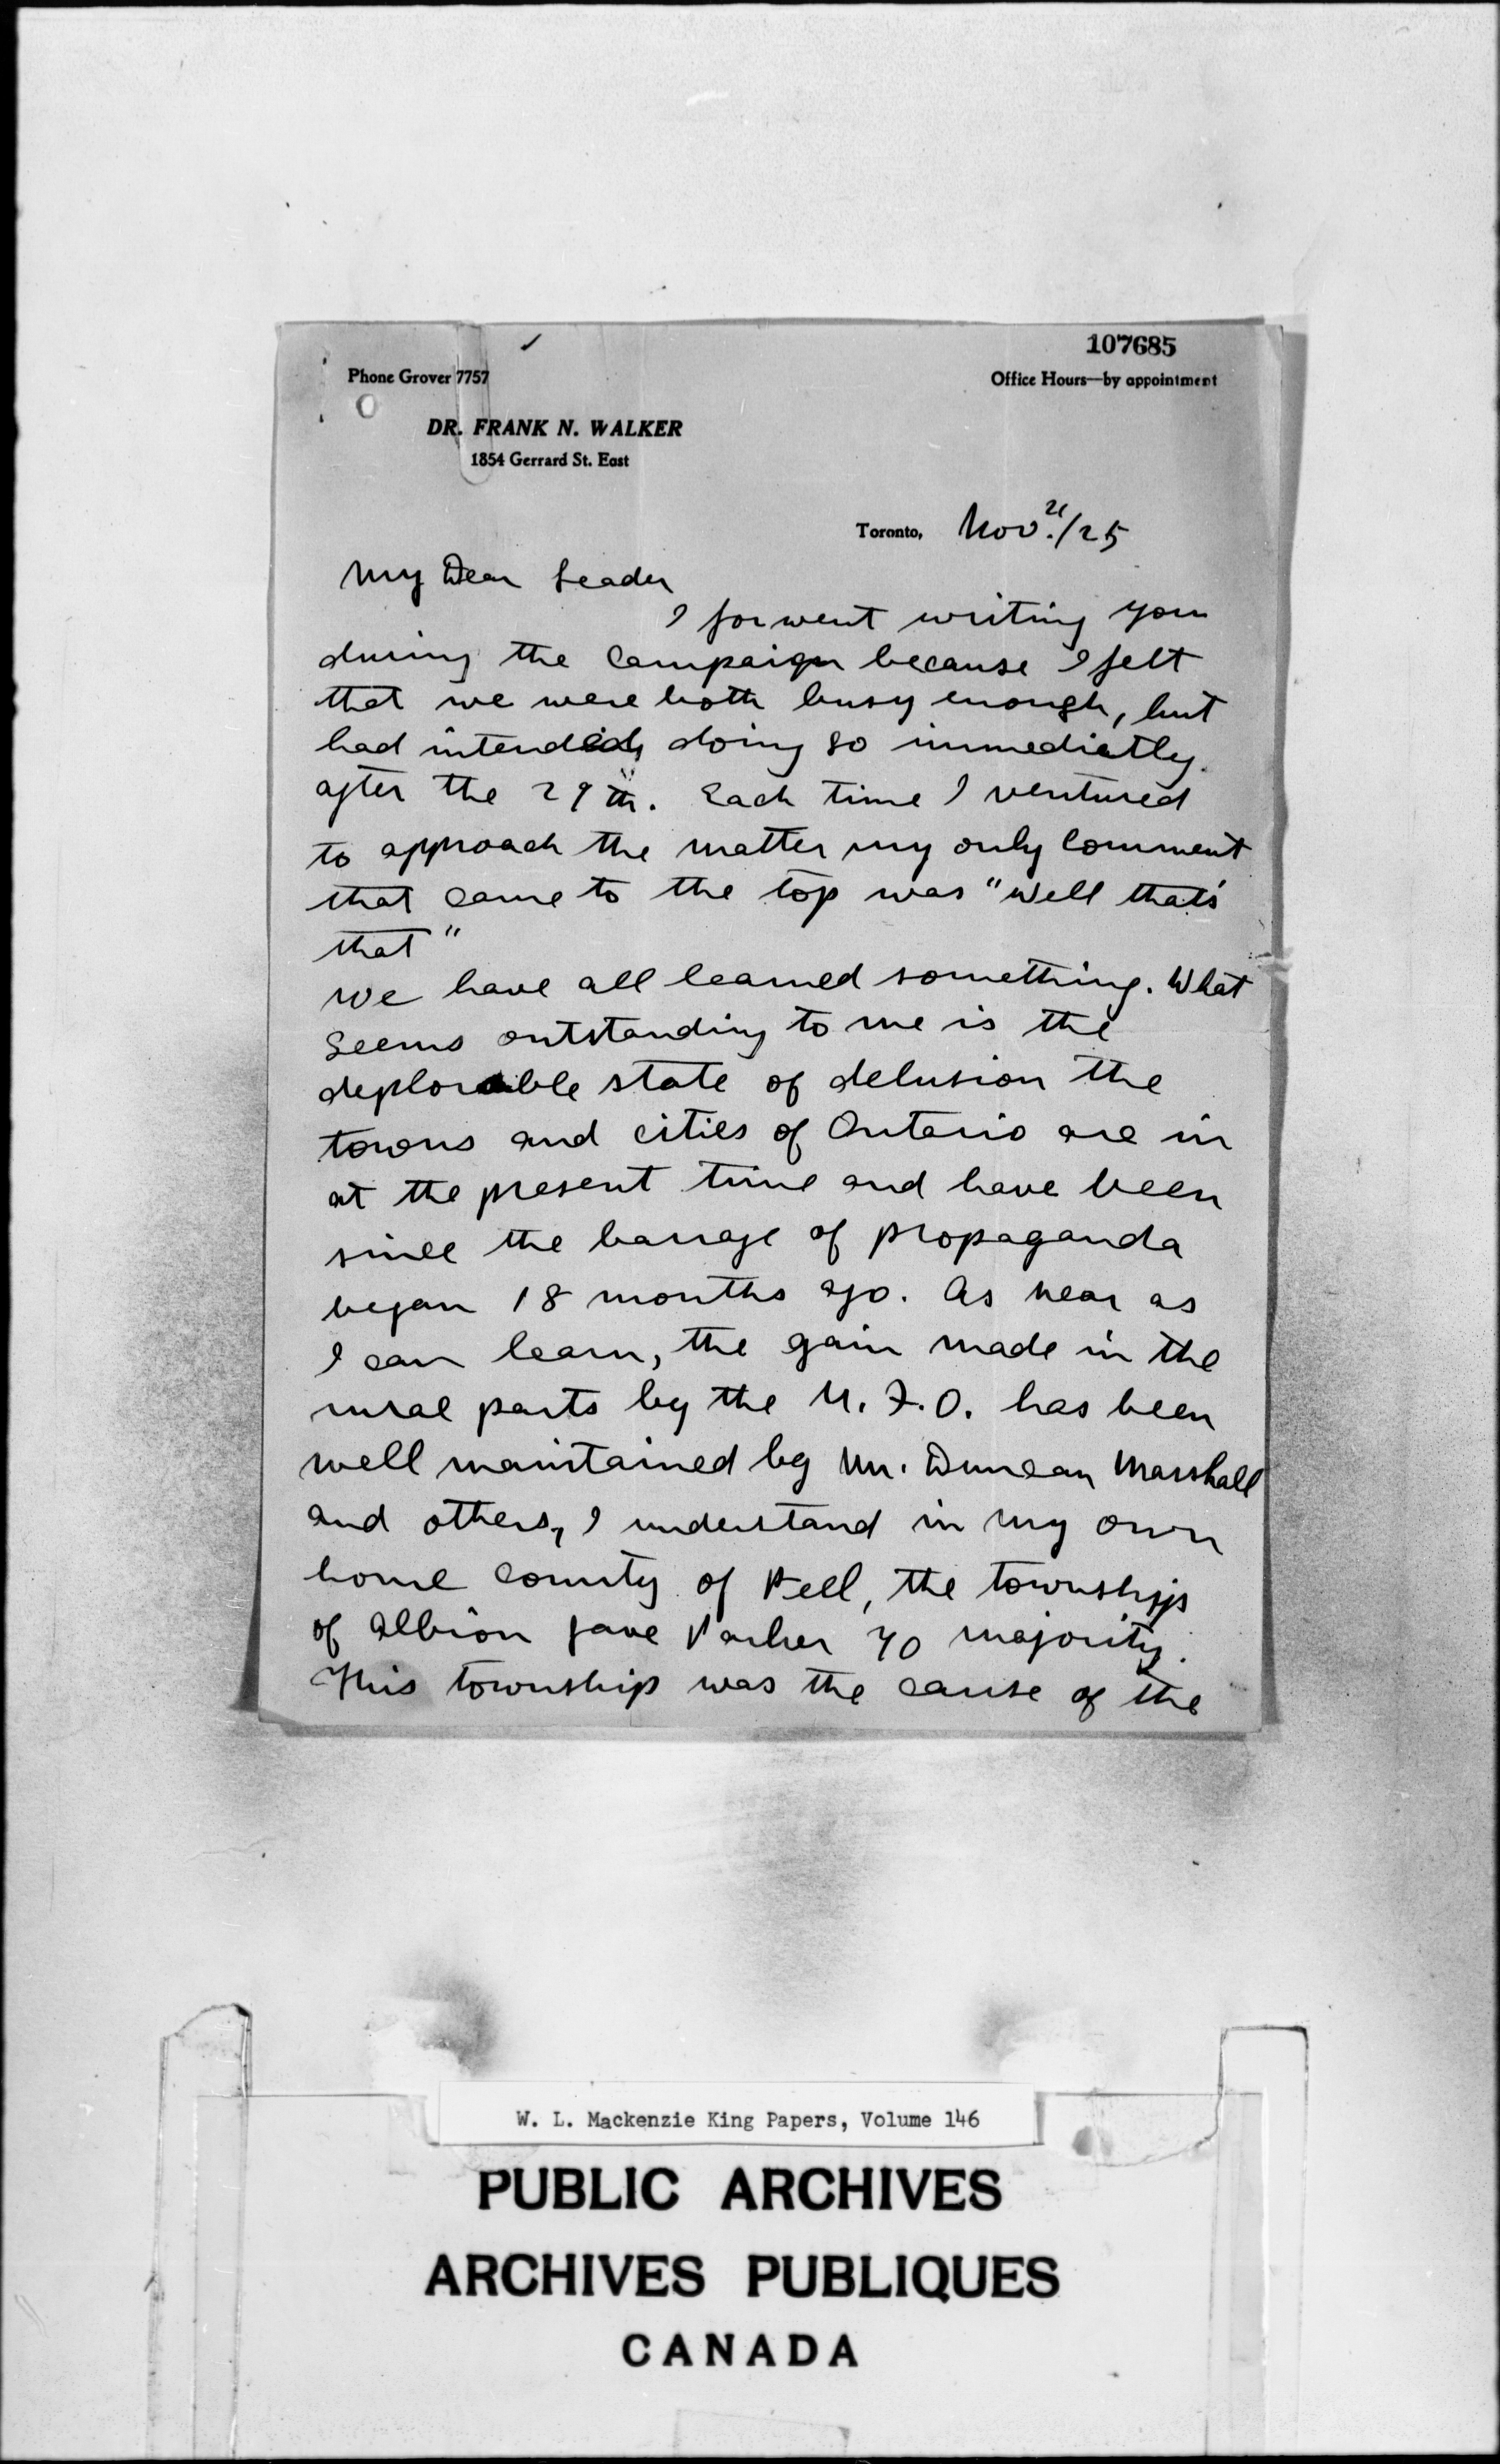 107685
Phone Grover 7757
Office Hours—by appointment
DR. FRANK N. WALKER
1854 Gerrard St. East
Toronto, Nov. 21/25
My Dear Leader
I forwent writing you
during the campaign because I felt
that we were both busy enough, but
had intended doing so immediatly
after the 29th. Each time I ventured
to approach the matter my only comment
that came to the top was "Well that's
that"
We have all learned something. What
seems outstanding to me is the
deplorable state of delusion the
towns and cities of Ontario are in
at the present time and have been
since the barrage of propaganda
began 18 months ago. As near as
I can learn, the gain made in the
rural parts by the U.F.O. has been
well maintained by Mr. Duncan Marshall
and others, I understand in my own
home county of Peel, the townships
of Albion gave Parker 70 majority.
This township was the cause of the
W. L. Mackenzie King Papers, Volume 146
PUBLIC ARCHIVES
ARCHIVES PUBLIQUES
CANADA